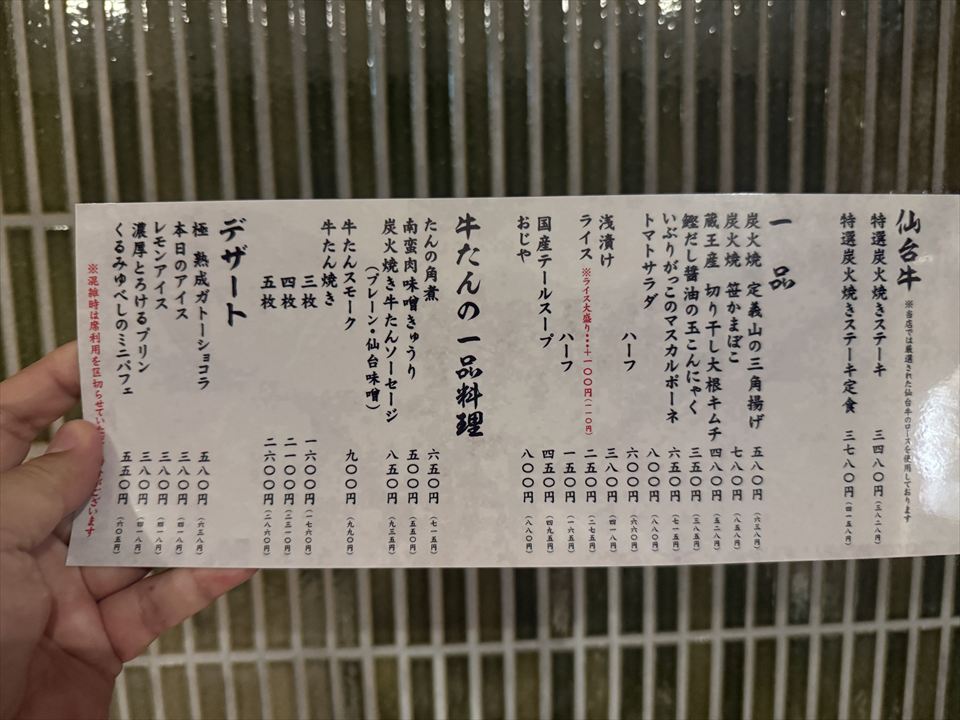 仙台牛 ※当店では厳選された仙台牛のロースを使用しております
特選炭火焼きステーキ 三四八〇円(三八二八円)
特選炭火焼きステーキ定食 三七八〇円(四一五八円)
一品
炭火焼 定義山の三角揚げ 五八〇円(六三八円)
炭火焼 笹かまぼこ 七八〇円(八五八円)
蔵王産 切り干し大根キムチ 四八〇円(五二八円)
鰹だし醤油の玉こんにゃく 三五〇円(三八五円)
いぶりがっこのマスカルポーネ 六五〇円(七一五円)
トマトサラダ 八〇〇円(八八〇円)
ハーフ 六〇〇円(六六〇円)
浅漬け 三八〇円(四一八円)
ライス ※ライス大盛り…+一〇〇円(一一〇円) 二五〇円(二七五円)
ハーフ 一五〇円(一六五円)
国産テールスープ 四五〇円(四九五円)
おじや 八〇〇円(八八〇円)
牛たんの一品料理
たんの角煮 六五〇円(七一五円)
南蛮肉味噌きゅうり 五〇〇円(五五〇円)
炭火焼き牛たんソーセージ 八五〇円(九三五円)
(プレーン・仙台味噌)
牛たんスモーク 九〇〇円(九九〇円)
牛たん焼き
三枚 一六〇〇円(一七六〇円)
四枚 二一〇〇円(二三一〇円)
五枚 二六〇〇円(二八六〇円)
デザート
極 熟成ガトーショコラ 五八〇円(六三八円)
本日のアイス 三八〇円(四一八円)
レモンアイス 三八〇円(四一八円)
濃厚とろけるプリン 三八〇円(四一八円)
くるみゆべしのミニパフェ 五五〇円(六〇五円)
※混雑時は席利用を区切らせていた ございます